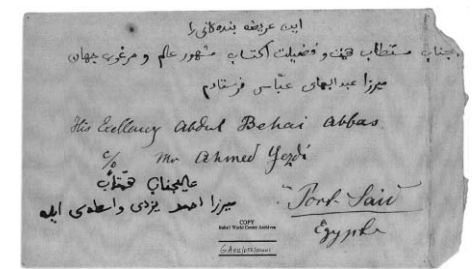 این عریضه بندگانی را
بجناب مستطاب همت و فضیلت اکتساب مشهور عالم و مرغوب جهان
میرزا عبدالبهای عبّاس فرستادم
His Exellency Abdul Behai Abbas.
c/o Mr Ahmed Yezdi
عالیجناب
میرزا احمد یزدی واسطه‌سی ایله
Port Said
Egypte
COPY
Bahá'í World Centre Archives